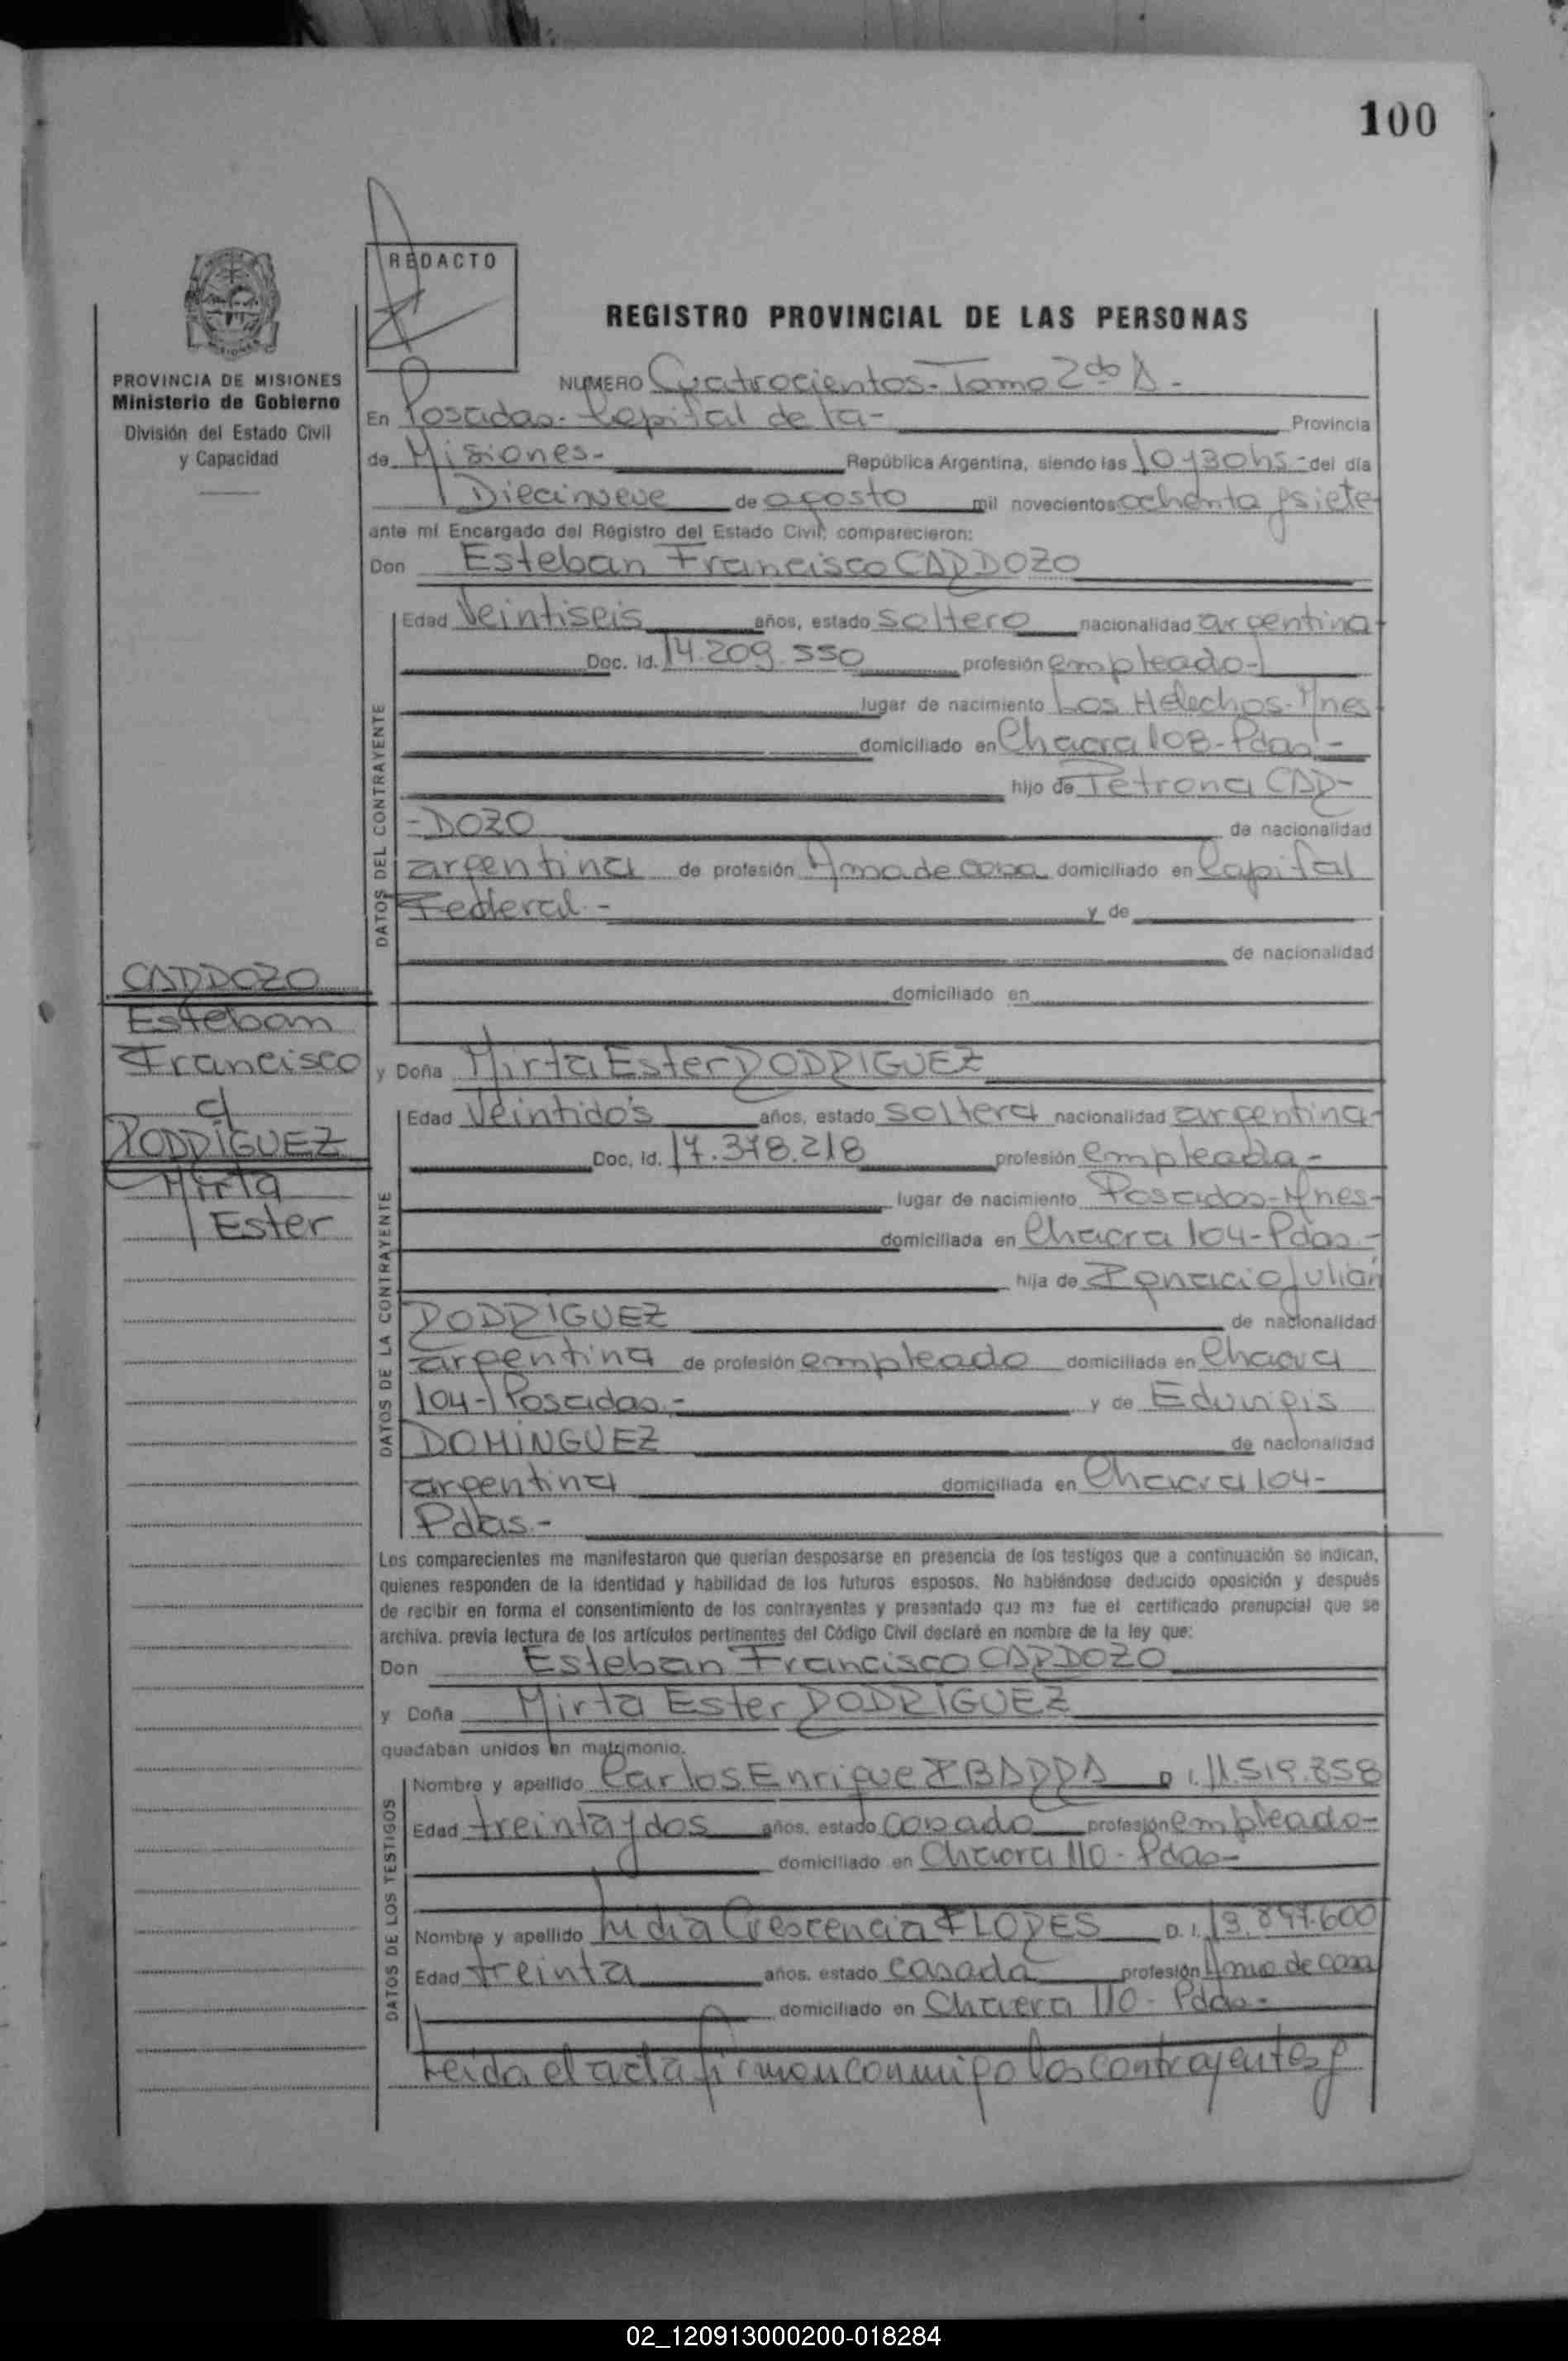 100
REDACTO
REGISTRO PROVINCIAL DE LAS PERSONAS
PROVINCIA DE MISIONES
Ministerio de Gobierno
División del Estado Civil
y Capacidad
NUMERO Cuatrocientos-Tomo 2do A-
En Posadas- Capital de la- Provincia
de Misiones- República Argentina, siendo las 10y30hs- del día
Diecinueve de agosto mil novecientos ochenta y siete
ante mí Encargado del Registro del Estado Civil; comparecieron:
Don Esteban Francisco CARDOZO
DATOS DEL CONTRAYENTE
Edad Veintiseis años, estado soltero nacionalidad argentina
Doc. Id. 14.209.550 profesión empleado-
lugar de nacimiento Los Helechos-Mnes
domiciliado en Chacra 108-Pdas-
hijo de Petrona CAR-
-DOZO de nacionalidad
argentina de profesión Ama de casa domiciliado en Capital
Federal- y de
de nacionalidad
domiciliado en
CARDOZO
Esteban
Francisco
c/
RODRIGUEZ
Mirta
Ester
y Doña Mirta Ester RODRIGUEZ
DATOS DE LA CONTRAYENTE
Edad Veintidós años, estado soltera nacionalidad argentina-
Doc. Id. 17.378.218 profesión empleada-
lugar de nacimiento Posadas-Mnes-
domiciliada en Chacra 104-Pdas.-
hija de Ignacio Julián
RODRIGUEZ de nacionalidad
argentina de profesión empleado domiciliada en Chacra
104-Posadas.- y de Eduvigis
DOMINGUEZ de nacionalidad
argentina domiciliada en Chacra 104-
Pdas.-
Los comparecientes me manifestaron que querían desposarse en presencia de los testigos que a continuación se indican,
quienes responden de la identidad y habilidad de los futuros esposos. No habiéndose deducido oposición y después
de recibir en forma el consentimiento de los contrayentes y presentado que me fue el certificado prenupcial que se
archiva. previa lectura de los artículos pertinentes del Código Civil declaré en nombre de la ley que:
Don Esteban Francisco CARDOZO
y Doña Mirta Ester RODRIGUEZ
quedaban unidos en matrimonio.
DATOS DE LOS TESTIGOS
Nombre y apellido Carlos Enrique IBARRA D. I. 11.519.858
Edad treinta y dos años. estado casado profesión empleado-
domiciliado en Chacra 110-Pdas-
Nombre y apellido Lidia Crescencia FLORES D. I. 13.897.600
Edad treinta años. estado casada profesión Ama de casa
domiciliado en Chacra 110- Pdas-
Leida el acta firman conmigo los contrayentes y
02_120913000200-018284